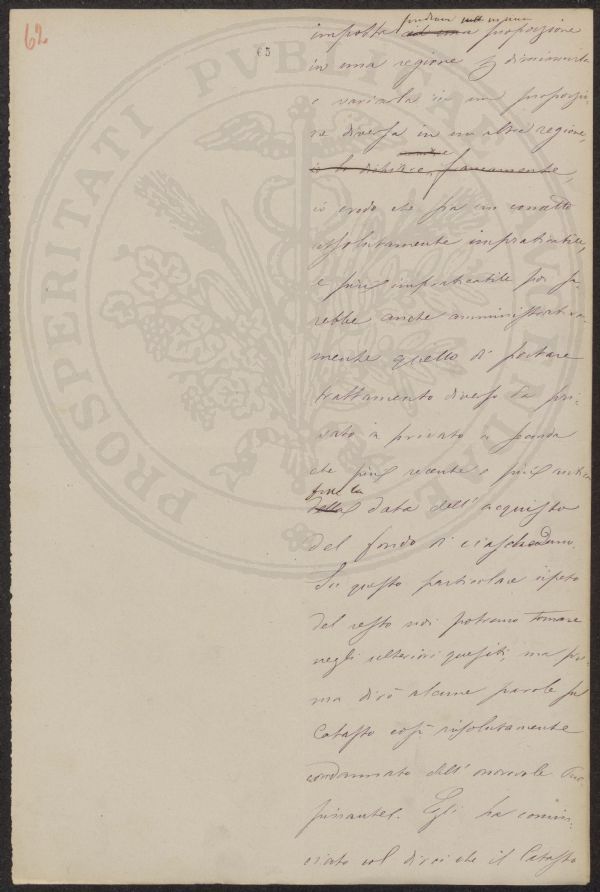 62
65
imposta in una proporzione
in una regione e diminuita
e variata in una proporzio-
ne diversa in un'altra regione,
io lo direi, francamente,
io credo che sia un concetto
assolutamente impraticabile,
e più impraticabile poi sa-
rebbe anche amministrativa-
mente quello di portare
trattamento diverso da pri-
vato a privato a seconda
che più recente o più antica
fosse la
data dell'acquisto
del fondo di ciascheduno.
Su questo particolare ripeto
del resto noi potremo tornare
negli ulteriori quesiti, ma pri-
ma dirò alcune parole sul
Catasto così risolutamente
condannato dall'onorevole
Egli ha comin-
ciato col dirci che il Catasto
PROSPERITATI PUBLICAE